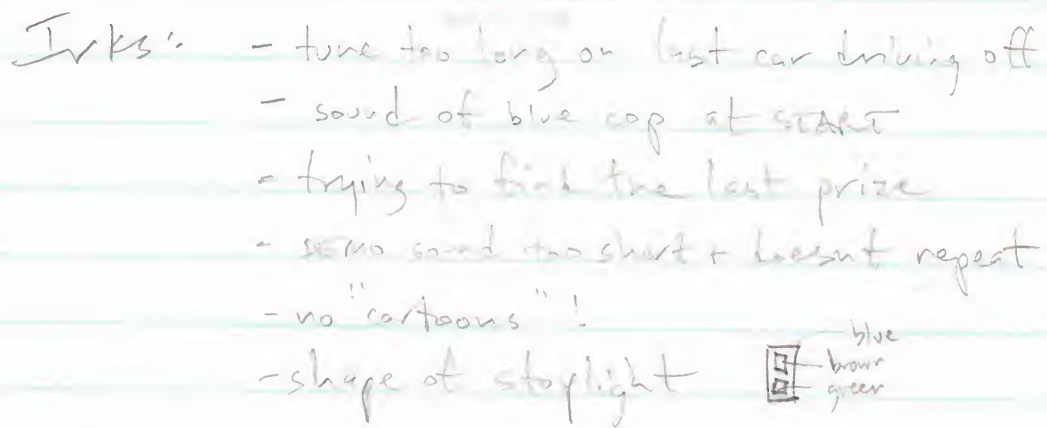 Irks: - tune too long on last car driving off
- sound of blue cop at START
- trying to find the last prize
- DEMO sound too short + doesnt repeat
- no "cartoons" !
- shape of stoplight
blue
brown
green